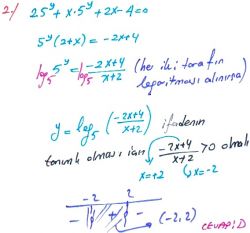 2-) 25^y + x·5^y + 2x - 4 = 0
5^y (2+x) = -2x+4
log_5 5^y = log_5 (-2x+4)/(x+2) (her iki tarafın logaritması alınırsa)
y = log_5 ((-2x+4)/(x+2)) ifadenin
tanımlı olması için (-2x+4)/(x+2) > 0 olmalı
x=+2 x=-2
-2 2
- + -
(-2,2)
CEVAP: D